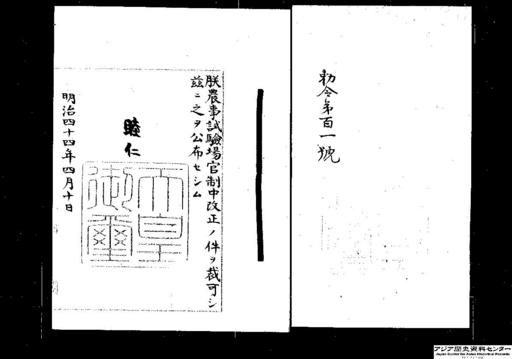 勅令第百一號
朕農事試驗場官制中改正ノ件ヲ裁可シ
茲ニ之ヲ公布セシム
睦仁
天皇御璽
明治四十四年四月十日
アジア歴史資料センター
Japan Center for Asian Historical Records